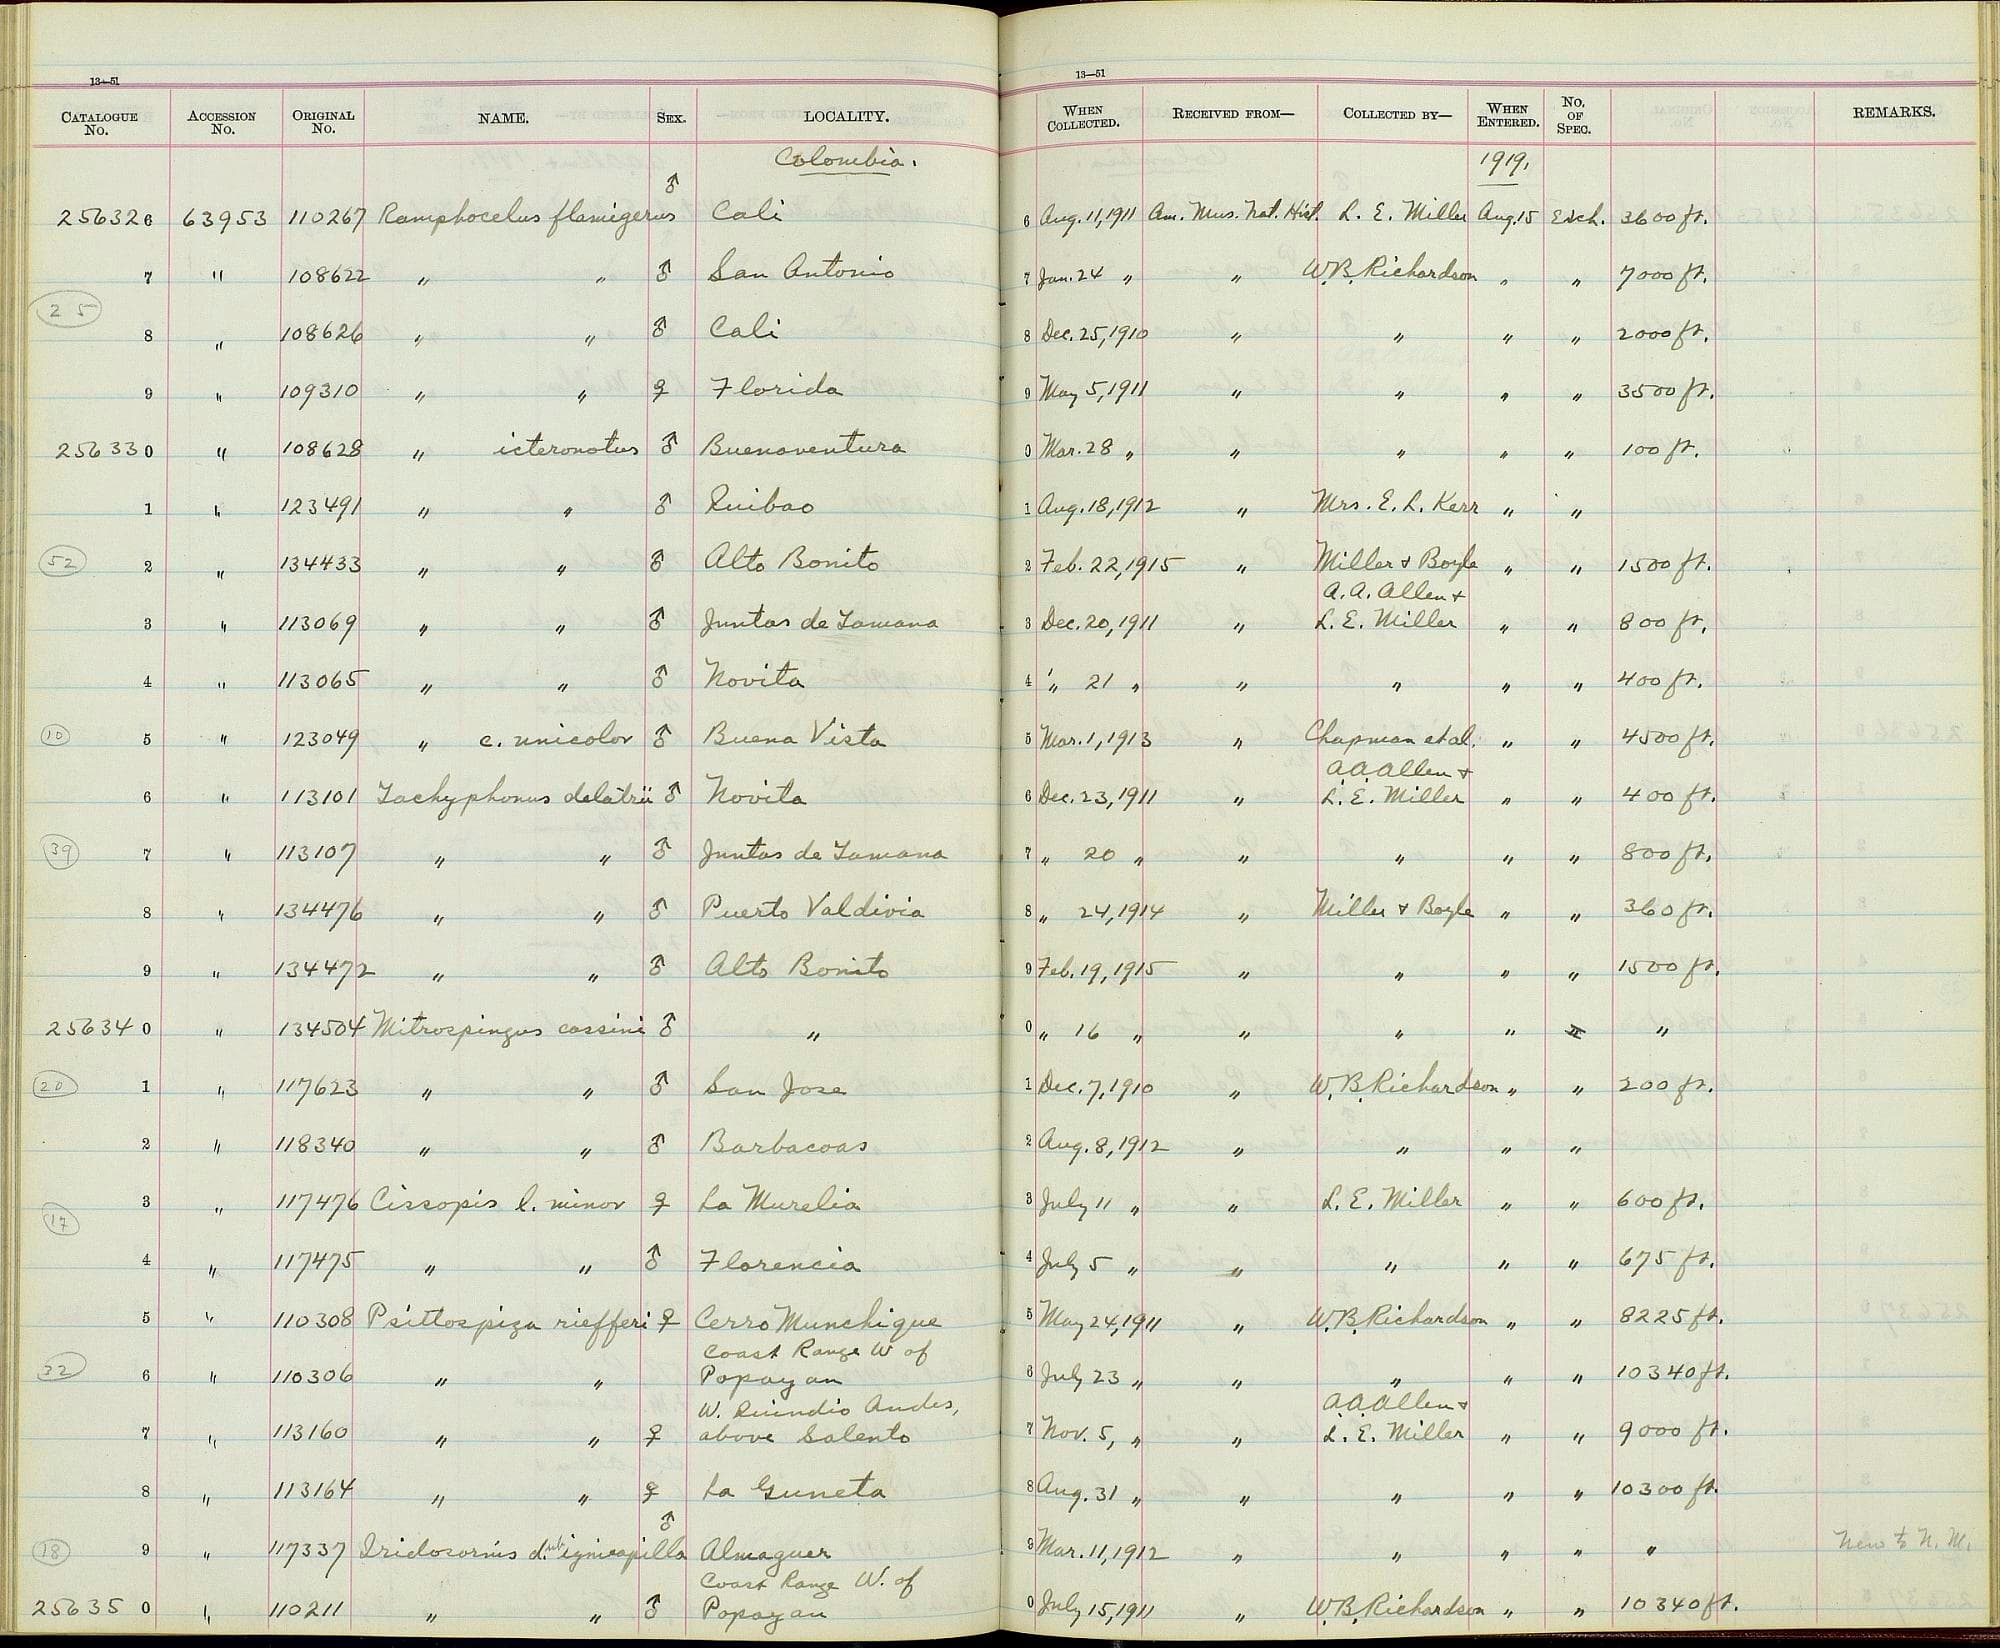 13—51
CATALOGUE No. ACCESSION No. ORIGINAL No. NAME. SEX. LOCALITY.
Colombia.
256326 63953 110267 Ramphocelus flamigerus ♂ Cali
7 " 108622 " " ♂ San Antonio
25
8 " 108626 " " ♂ Cali
9 " 109310 " " ♀ Florida
256330 " 108628 " icteronotus ♂ Buenaventura
1 " 123491 " " ♂ Quibao
52
2 " 134433 " " ♂ Alto Bonito
3 " 113069 " " ♂ Juntas de Tamana
4 " 113065 " " ♂ Novita
10
5 " 123049 " c. unicolor ♂ Buena Vista
6 " 113101 Tachyphonus delatrii ♂ Novita
39
7 " 113107 " " ♂ Juntas de Tamana
8 " 134476 " " ♂ Puerto Valdivia
9 " 134472 " " ♂ Alto Bonito
256340 " 134504 Mitrospingus cassini ♂ "
20
1 " 117623 " " ♂ San Jose
2 " 118340 " " ♂ Barbacoas
3 " 117476 Cissopis l. minor ♀ La Murelia
17
4 " 117475 " " ♂ Florencia
5 " 110308 Psittospiza riefferi ♀ Cerro Munchique
Coast Range W of
6 " 110306 " " Popayan
W. Quindio Andes,
7 " 113160 " " ♀ above Salento
8 " 113164 " " ♀ La Guneta
18
9 " 117337 Iridosornis d. ignicapilla ♂ Almaguer
Coast Range W. of
256350 " 110211 " " ♂ Popayan
13—51
WHEN COLLECTED. RECEIVED FROM— COLLECTED BY— WHEN ENTERED. No. OF SPEC. REMARKS.
1919.
6 Aug. 11, 1911 Am. Mus. Nat. Hist. L. E. Miller Aug. 15 Exch. 3600 ft.
7 Jan. 24 " " W. B. Richardson " " 7000 ft.
8 Dec. 25, 1910 " " " " 2000 ft.
9 May 5, 1911 " " " " 3500 ft.
0 Mar. 28 " " " " " 100 ft.
1 Aug. 18, 1912 " Mrs. E. L. Kerr " "
2 Feb. 22, 1915 " Miller & Boyle " " 1500 ft.
A. A. Allen &
3 Dec. 20, 1911 " L. E. Miller " " 800 ft.
4 " 21 " " " " " 400 ft.
5 Mar. 1, 1913 " Chapman et al. " " 4500 ft.
A. A. Allen &
6 Dec. 23, 1911 " L. E. Miller " " 400 ft.
7 " 20 " " " " " 800 ft.
8 " 24, 1914 " Miller & Boyle " " 360 ft.
9 Feb. 19, 1915 " " " " 1500 ft.
0 " 16 " " " " " "
1 Dec. 7, 1910 " W. B. Richardson " " 200 ft.
2 Aug. 8, 1912 " " " "
3 July 11 " " L. E. Miller " " 600 ft.
4 July 5 " " " " " 675 ft.
5 May 24, 1911 " W. B. Richardson " " 8225 ft.
6 July 23 " " " " " 10340 ft.
A. A. Allen &
7 Nov. 5, " " L. E. Miller " " 9000 ft.
8 Aug. 31 " " " " " 10300 ft.
9 Mar. 11, 1912 " " " " " New to N. M.
0 July 15, 1911 " W. B. Richardson " " 10340 ft.